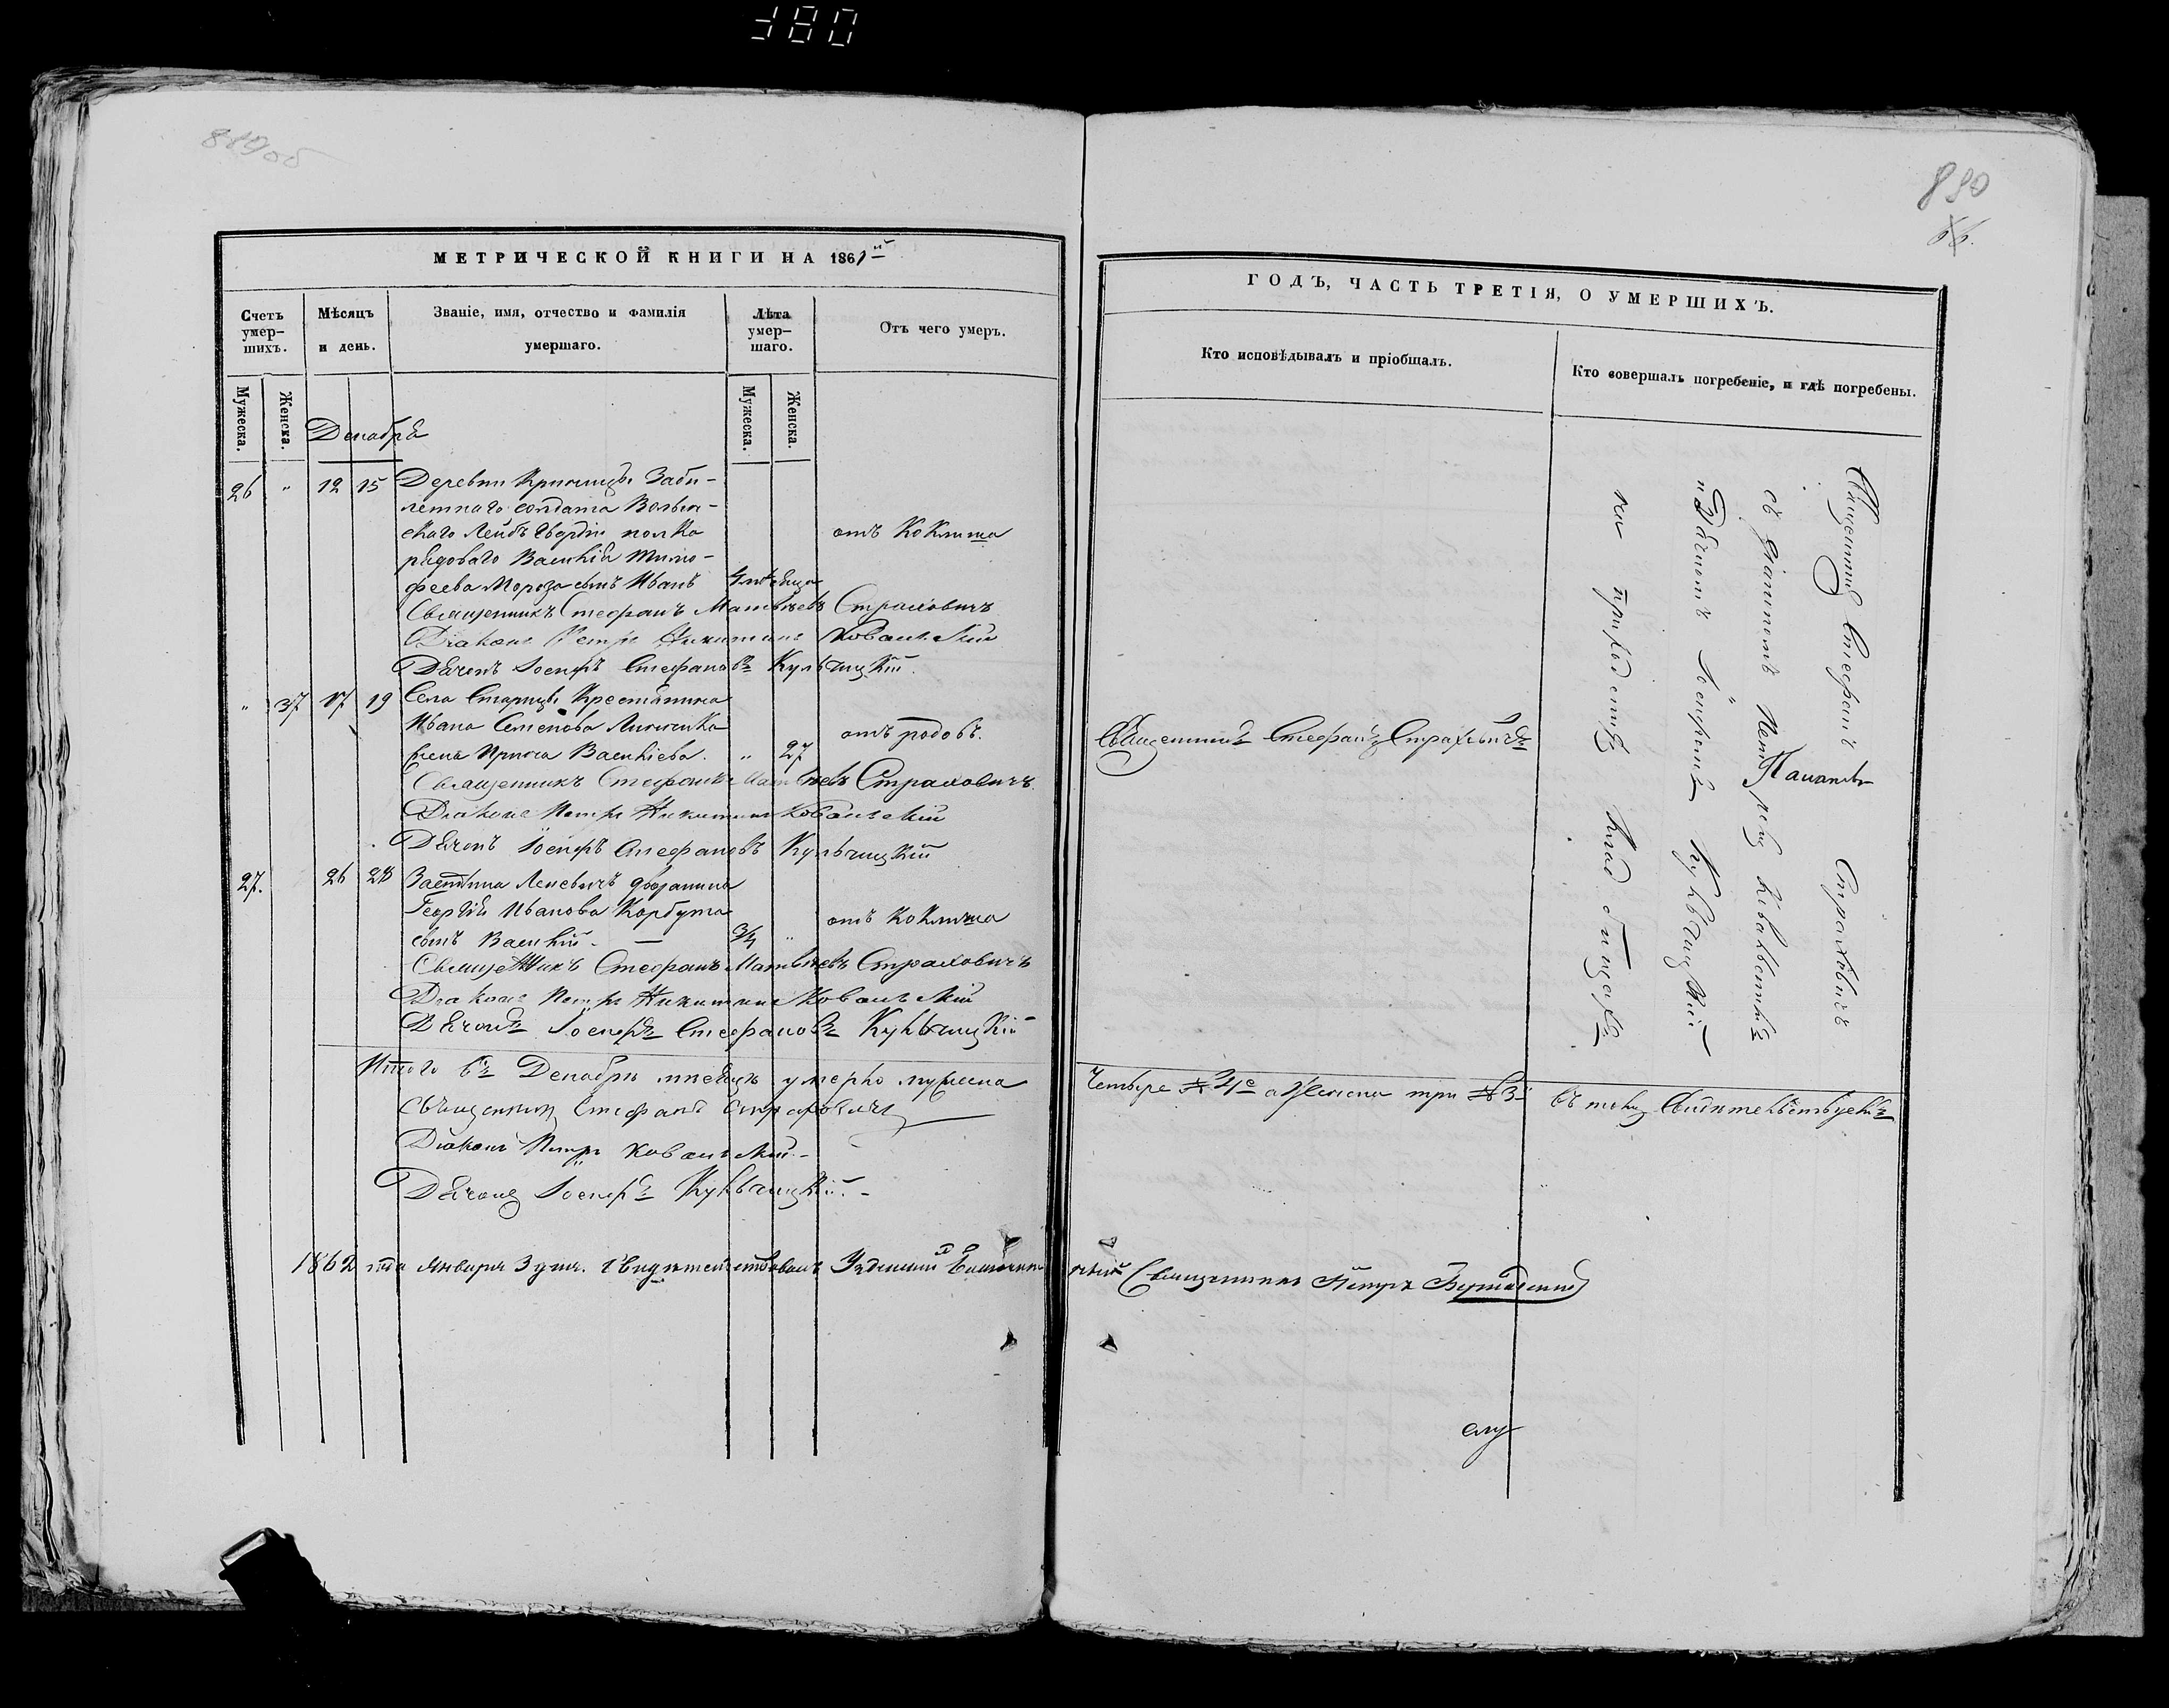 380
889об
890
66.
МЕТРИЧЕСКОЙ КНИГИ НА 1861й
Счетъ умер-
шихъ.
Мѣсяцъ
и день.
Званіе, имя, отчество и фамилія
умершаго.
Лѣта
умер-
шаго.
Отъ чего умеръ.
Мужеска.
Женска.
Мужеска.
Женска.
Декабря
26 " 12 15 Деревни Криницы Заби-
летнаго солдата Волын-
скаго Лейбъ Гвардіи полка
рядоваго Василія Тимо-
феева Мороза сынъ Иванъ 4 мѣсяца отъ коклюша
Священникъ Стефанъ Матвѣевъ Страховичъ
Діаконъ Петръ Никитинъ Ковалевскій
Дьячекъ Іосифъ Стефановъ Кульчицкій.
" 37 17 19 Села Старицы Крестьянина
Ивана Семенова
жена Васильева. " 27 отъ родовъ.
Священникъ Стефанъ Матвѣевъ Страховичъ
Діаконъ Петръ Никитинъ Ковалевскій
Дьячекъ Іосифъ Стефановъ Кульчицкій
27. 26 28 Застѣнка Леневичъ дворянина
Георгія Иванова Корбута
сынъ Василій. — 3/4 " отъ коклюша
Священникъ Стефанъ Матвѣевъ Страховичъ
Діаконъ Петръ Никитинъ Ковалевскій
Дьячекъ Іосифъ Стефановъ Кульчицкій
Итого въ Декабрѣ мѣсяцѣ умерло мужеска
Священникъ Стефанъ Страховичъ
Діаконъ Петръ Ковалевскій
Дьячекъ Іосифъ Кульчицкій. -
1862 года Января 3 дня. Свидѣтельствовалъ
ГОДЪ, ЧАСТЬ ТРЕТІЯ, О УМЕРШИХЪ.
Кто исповѣдывалъ и пріобщалъ.
Кто совершалъ погребеніе, и гдѣ погребены.
Священникъ Стефанъ Страховичъ
Священникъ Стефанъ Страховичъ
съ діакономъ Петромъ Ковалевскимъ
и Дьячкомъ Іосифомъ Кульчицкій
на приходскомъ кладбищахъ
четыре № 4е а женска три № 3 въ томъ свидѣтельствуемъ
Священникъ Петръ